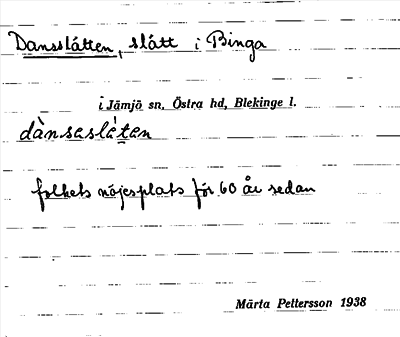 Dansslätten, slätt i Binga
i Jämjö sn, Östra hd, Blekinge l.
dànsaslätan
folkets nöjesplats för 60 år sedan
Märta Pettersson 1938